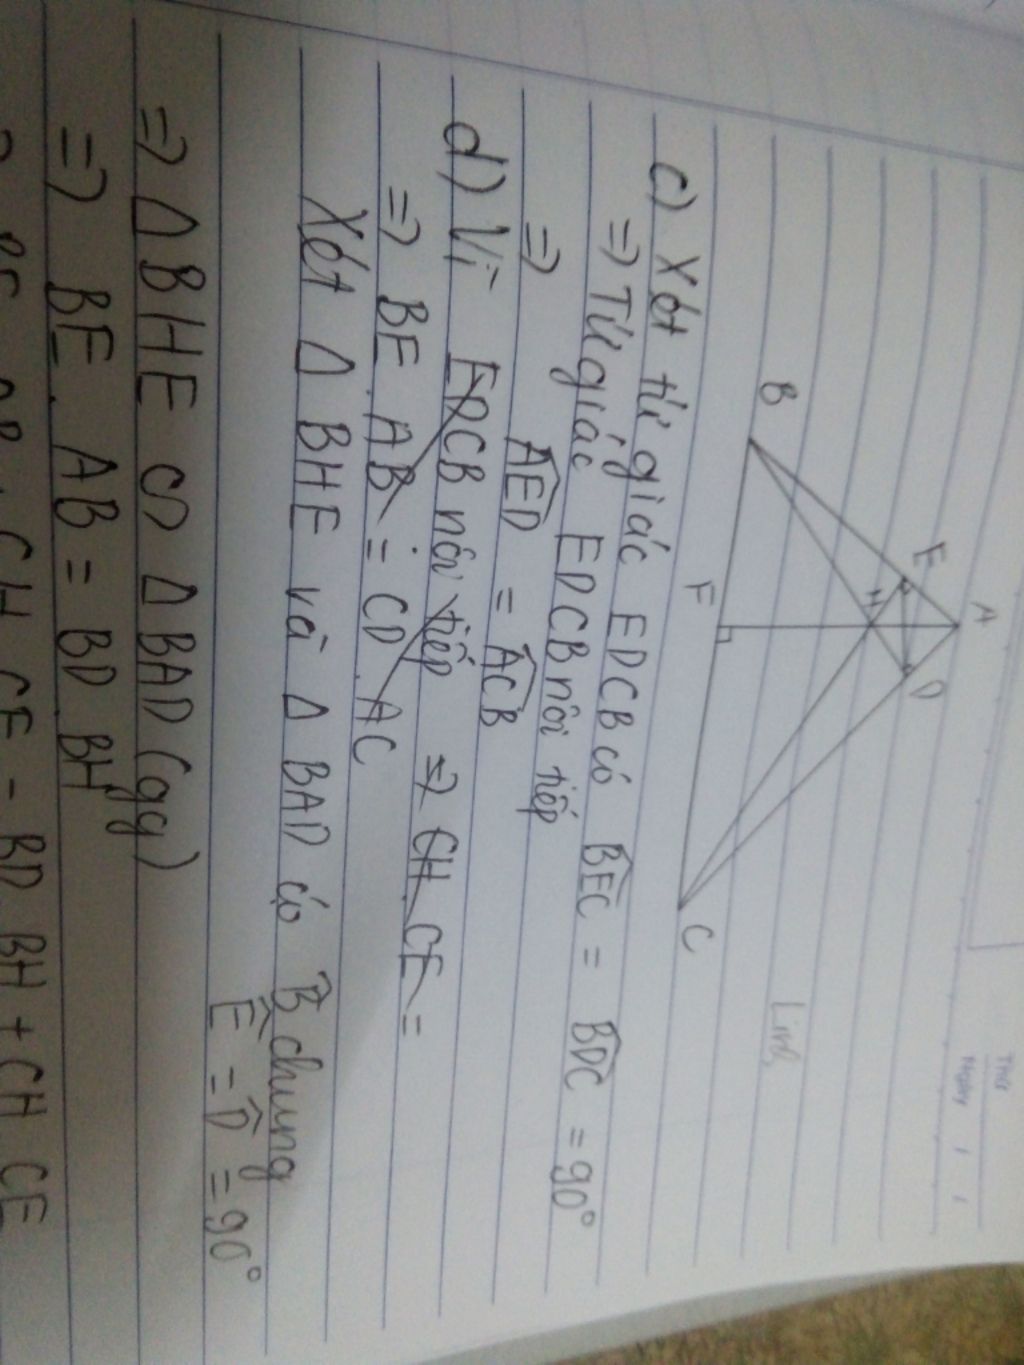 Thứ
Ngày / /
Linh
A
E
D
H
B
F
C
c) Xét tứ giác EDCB có BEC = BDC = 90°
=> Tứ giác EDCB nội tiếp
=> AED = ACB
d) Vì EDCB nội tiếp => CH.CE =
=> BE.AB = CD.AC
Xét Δ BHE và Δ BAD có B chung
E = D = 90°
=> Δ BHE ∽ Δ BAD (gg)
=> BE.AB = BD.BH
CH.CE = BD.BH + CH.CE